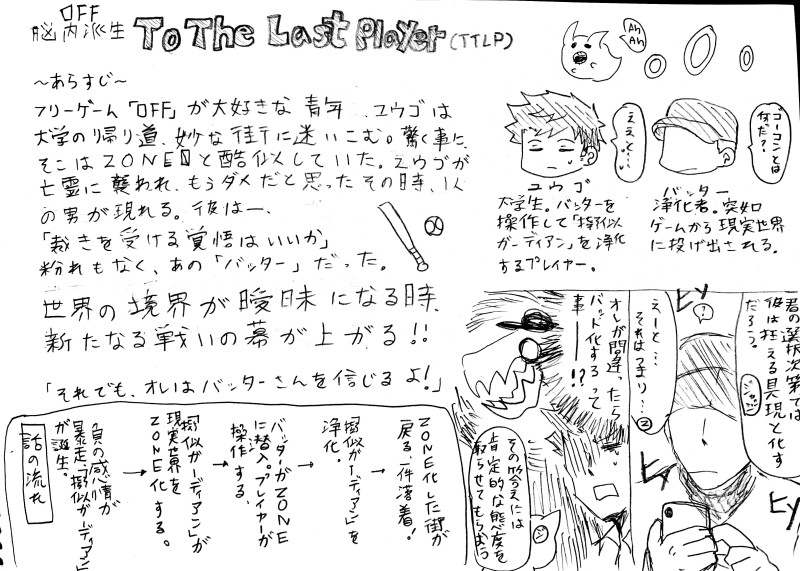 OFF
脳内派生
To The Last Player (TTLP)
～あらすじ～
フリーゲーム「OFF」が大好きな青年、ユウゴは
大学の帰り道、妙な街に迷いこむ。驚く事に、
そこはZONE0と酷似していた。ユウゴが
亡霊に襲われ、もうダメだと思ったその時、1人
の男が現れる。彼は―、
「裁きを受ける覚悟はいいか」
紛れもなく、あの「バッター」だった。
世界の境界が曖昧になる時、
新たなる戦いの幕が上がる!!
「それでも、オレはバッターさんを信じるよ!」
Ah
Ah
ええと…
ゴーコンとは
何だ?
ユウゴ
大学生。バッターを
操作して「擬似
ガーディアン」を浄化
するプレイヤー。
バッター
浄化者。突如
ゲームから現実世界
に投げ出される。
君の選択次第では
彼は狂える具現と化す
だろう。
ジャッジ
?
えーと…
それはつまり…
オレが間違ったら
バッド化するって
事―!?
その答えには
肯定的な態度を
取らせてもらおう
話の流れ
負の感情が
暴走、「擬似ガーディアン」
が誕生。
「擬似ガーディアン」が
現実世界を
ZONE化する。
バッターがZONE
に潜入。プレイヤーが
操作する。
「擬似ガーディアン」を
浄化。
ZONE化した街が
戻る。一件落着!